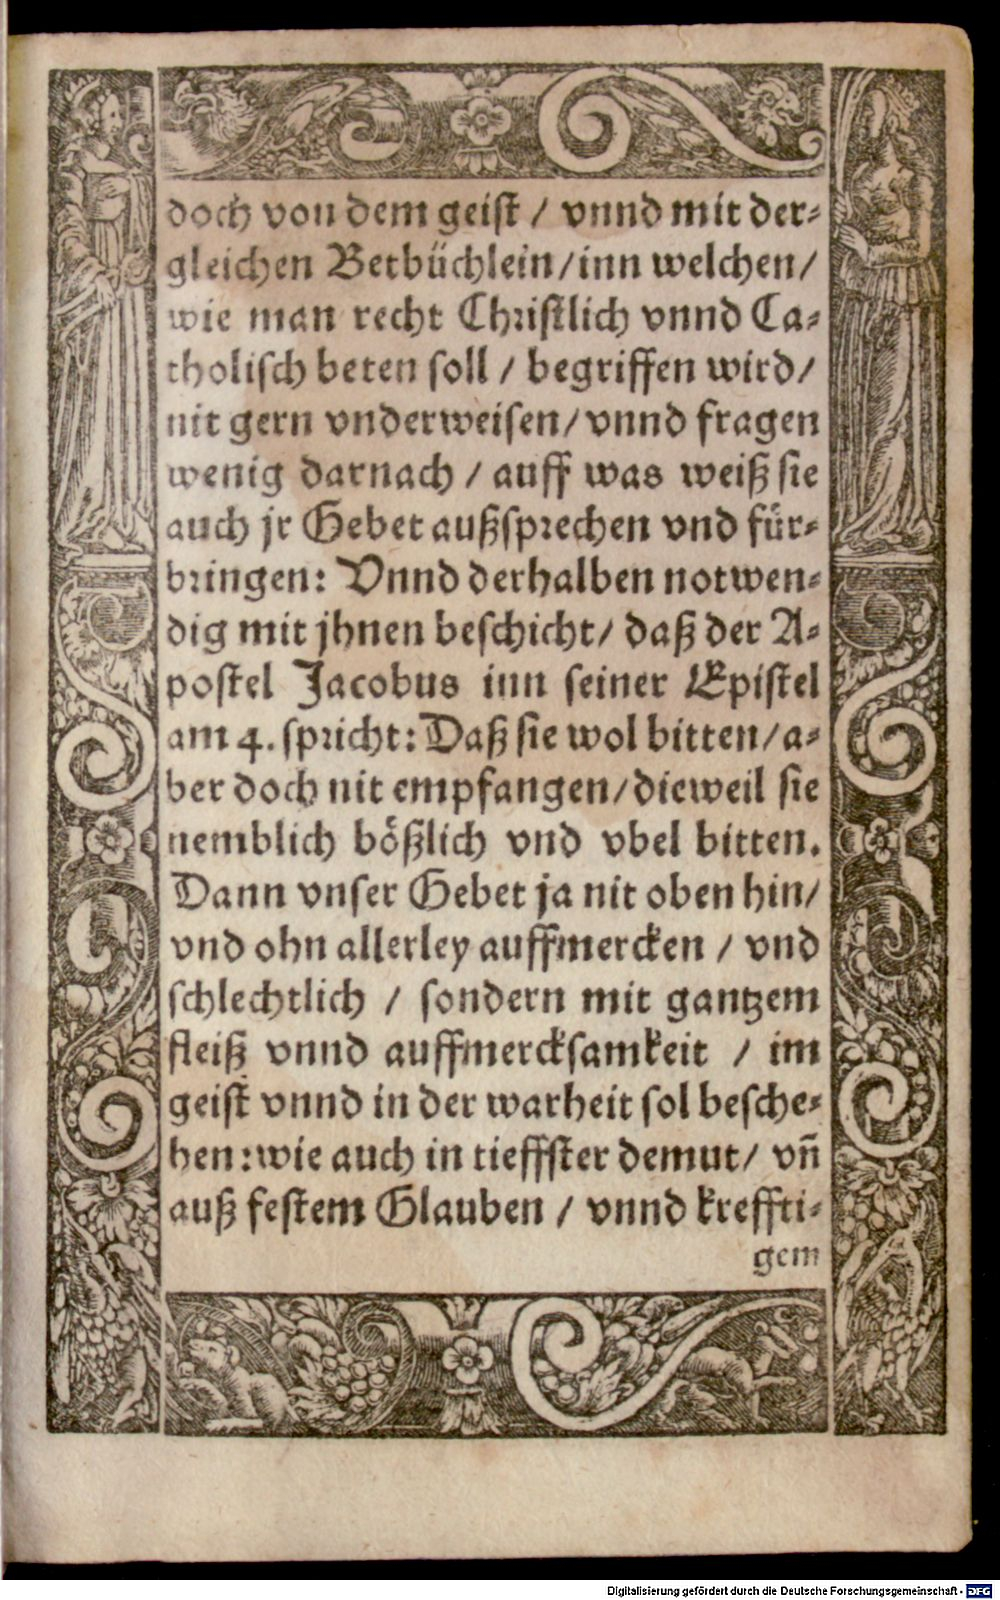 doch von dem geiſt / vnnd mit der⸗
gleichen Betbüchlein/inn welchen/
wie man recht Chriſtlich vnnd Ca⸗
tholiſch beten ſoll / begriffen wird/
nit gern vnderweiſen/vnnd fragen
wenig darnach / auff was weiß ſie
auch jr Gebet außſprechen vnd für⸗
bringen: Vnnd derhalben notwen⸗
dig mit jhnen beſchicht/ daß der A⸗
poſtel Jacobus inn ſeiner Epiſtel
am 4. ſpricht: Daß ſie wol bitten/a⸗
ber doch nit empfangen/dieweil ſie
nemblich bößlich vnd vbel bitten.
Dann vnſer Gebet ja nit oben hin/
vnd ohn allerley auffmercken / vnd
ſchlechtlich / ſondern mit gantzem
fleiß vnnd auffmerckſamkeit / im
geiſt vnnd in der warheit ſol beſche⸗
hen:wie auch in tieffſter demut/ vñ
auß feſtem Glauben / vnnd kreffti⸗
gem
Digitalisierung gefördert durch die Deutsche Forschungsgemeinschaft - DFG